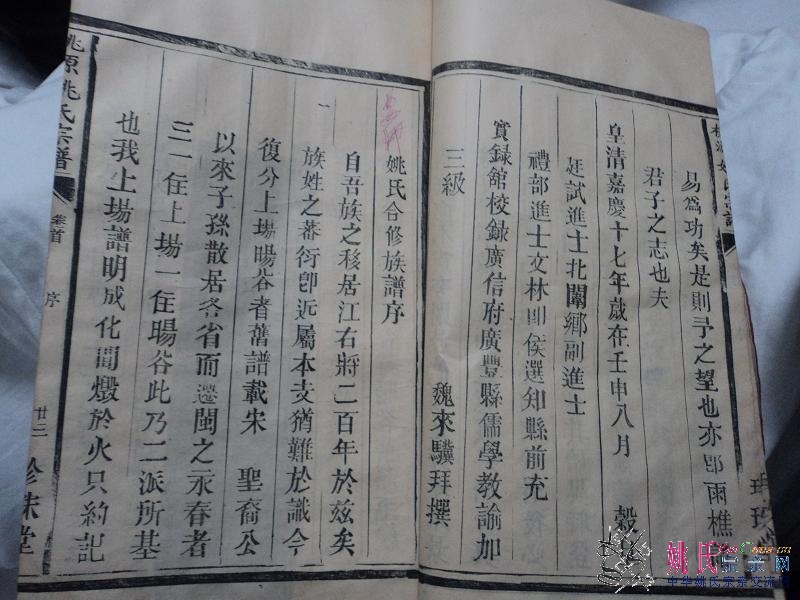 易爲功矣是則予之望也亦卽雨樵
君子之志也夫
皇清嘉慶十七年歲在壬申八月 穀
廷試進士北闈鄉副進士
禮部進士文林郎侯選知縣前充
實錄館校錄廣信府廣豐縣儒學教諭加
三級 魏來驥拜撰
姚氏合修族譜序
自吾族之移居江右將二百年於玆矣
族姓之蕃衍卽近屬本支猶難於識今
復分上場暘谷者舊譜載宋 聖裔公
以來子孫散居各省而遷閩之永春者
三一住上場一住暘谷此乃二派所基
也我上場譜明成化間燬於火只約記
姚原姚氏宗譜 卷首 序 廿三
姚氏
中华姚氏宗亲交流网